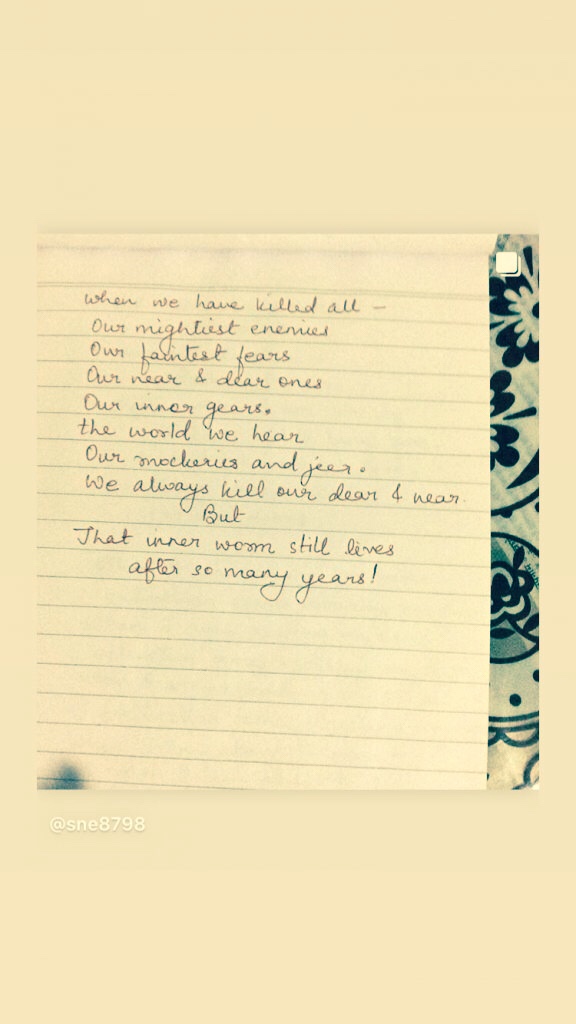 when we have killed all -
Our mightiest enemies
Our faintest fears
Our near & dear ones
Our inner gears.
the world we hear
Our mockeries and jeer.
We always kill our dear & near.
But
That inner worm still lives
after so many years!
@sne8798